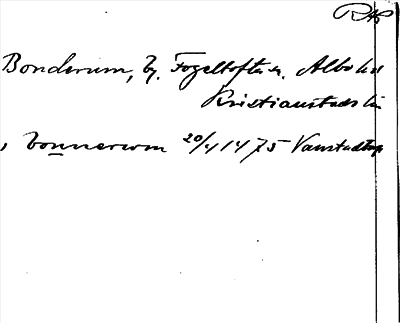 RAP
Bonderum, by. Fogeltofta sn. Albo hd
Kristianstads län
, bonnerwm 20/4 1475 Vanstadtorp